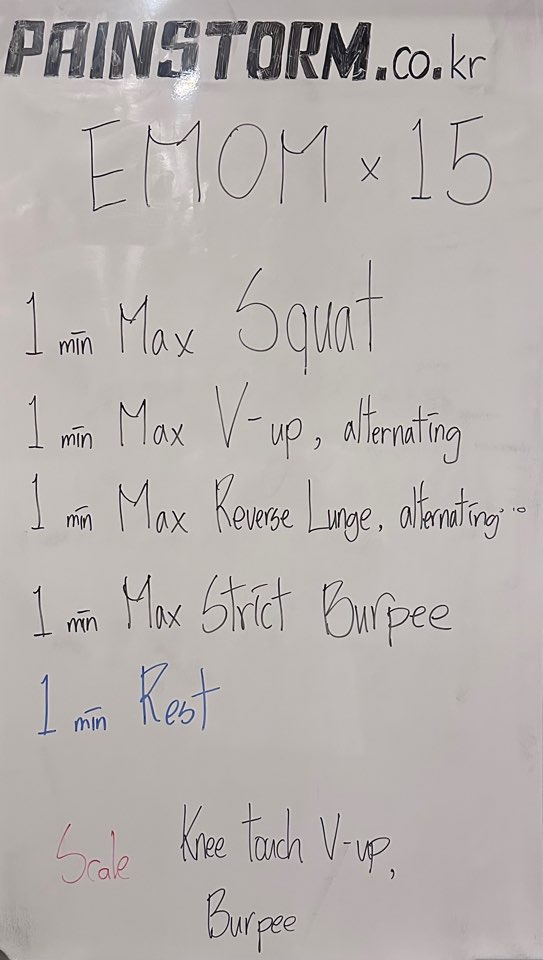 PAINSTORM.co.kr
EMOM x 15
1 min Max Squat
1 min Max V-up, alternating
1 min Max Reverse Lunge, alternating...
1 min Max Strict Burpee
1 min Rest
Scale Knee touch V-up,
Burpee